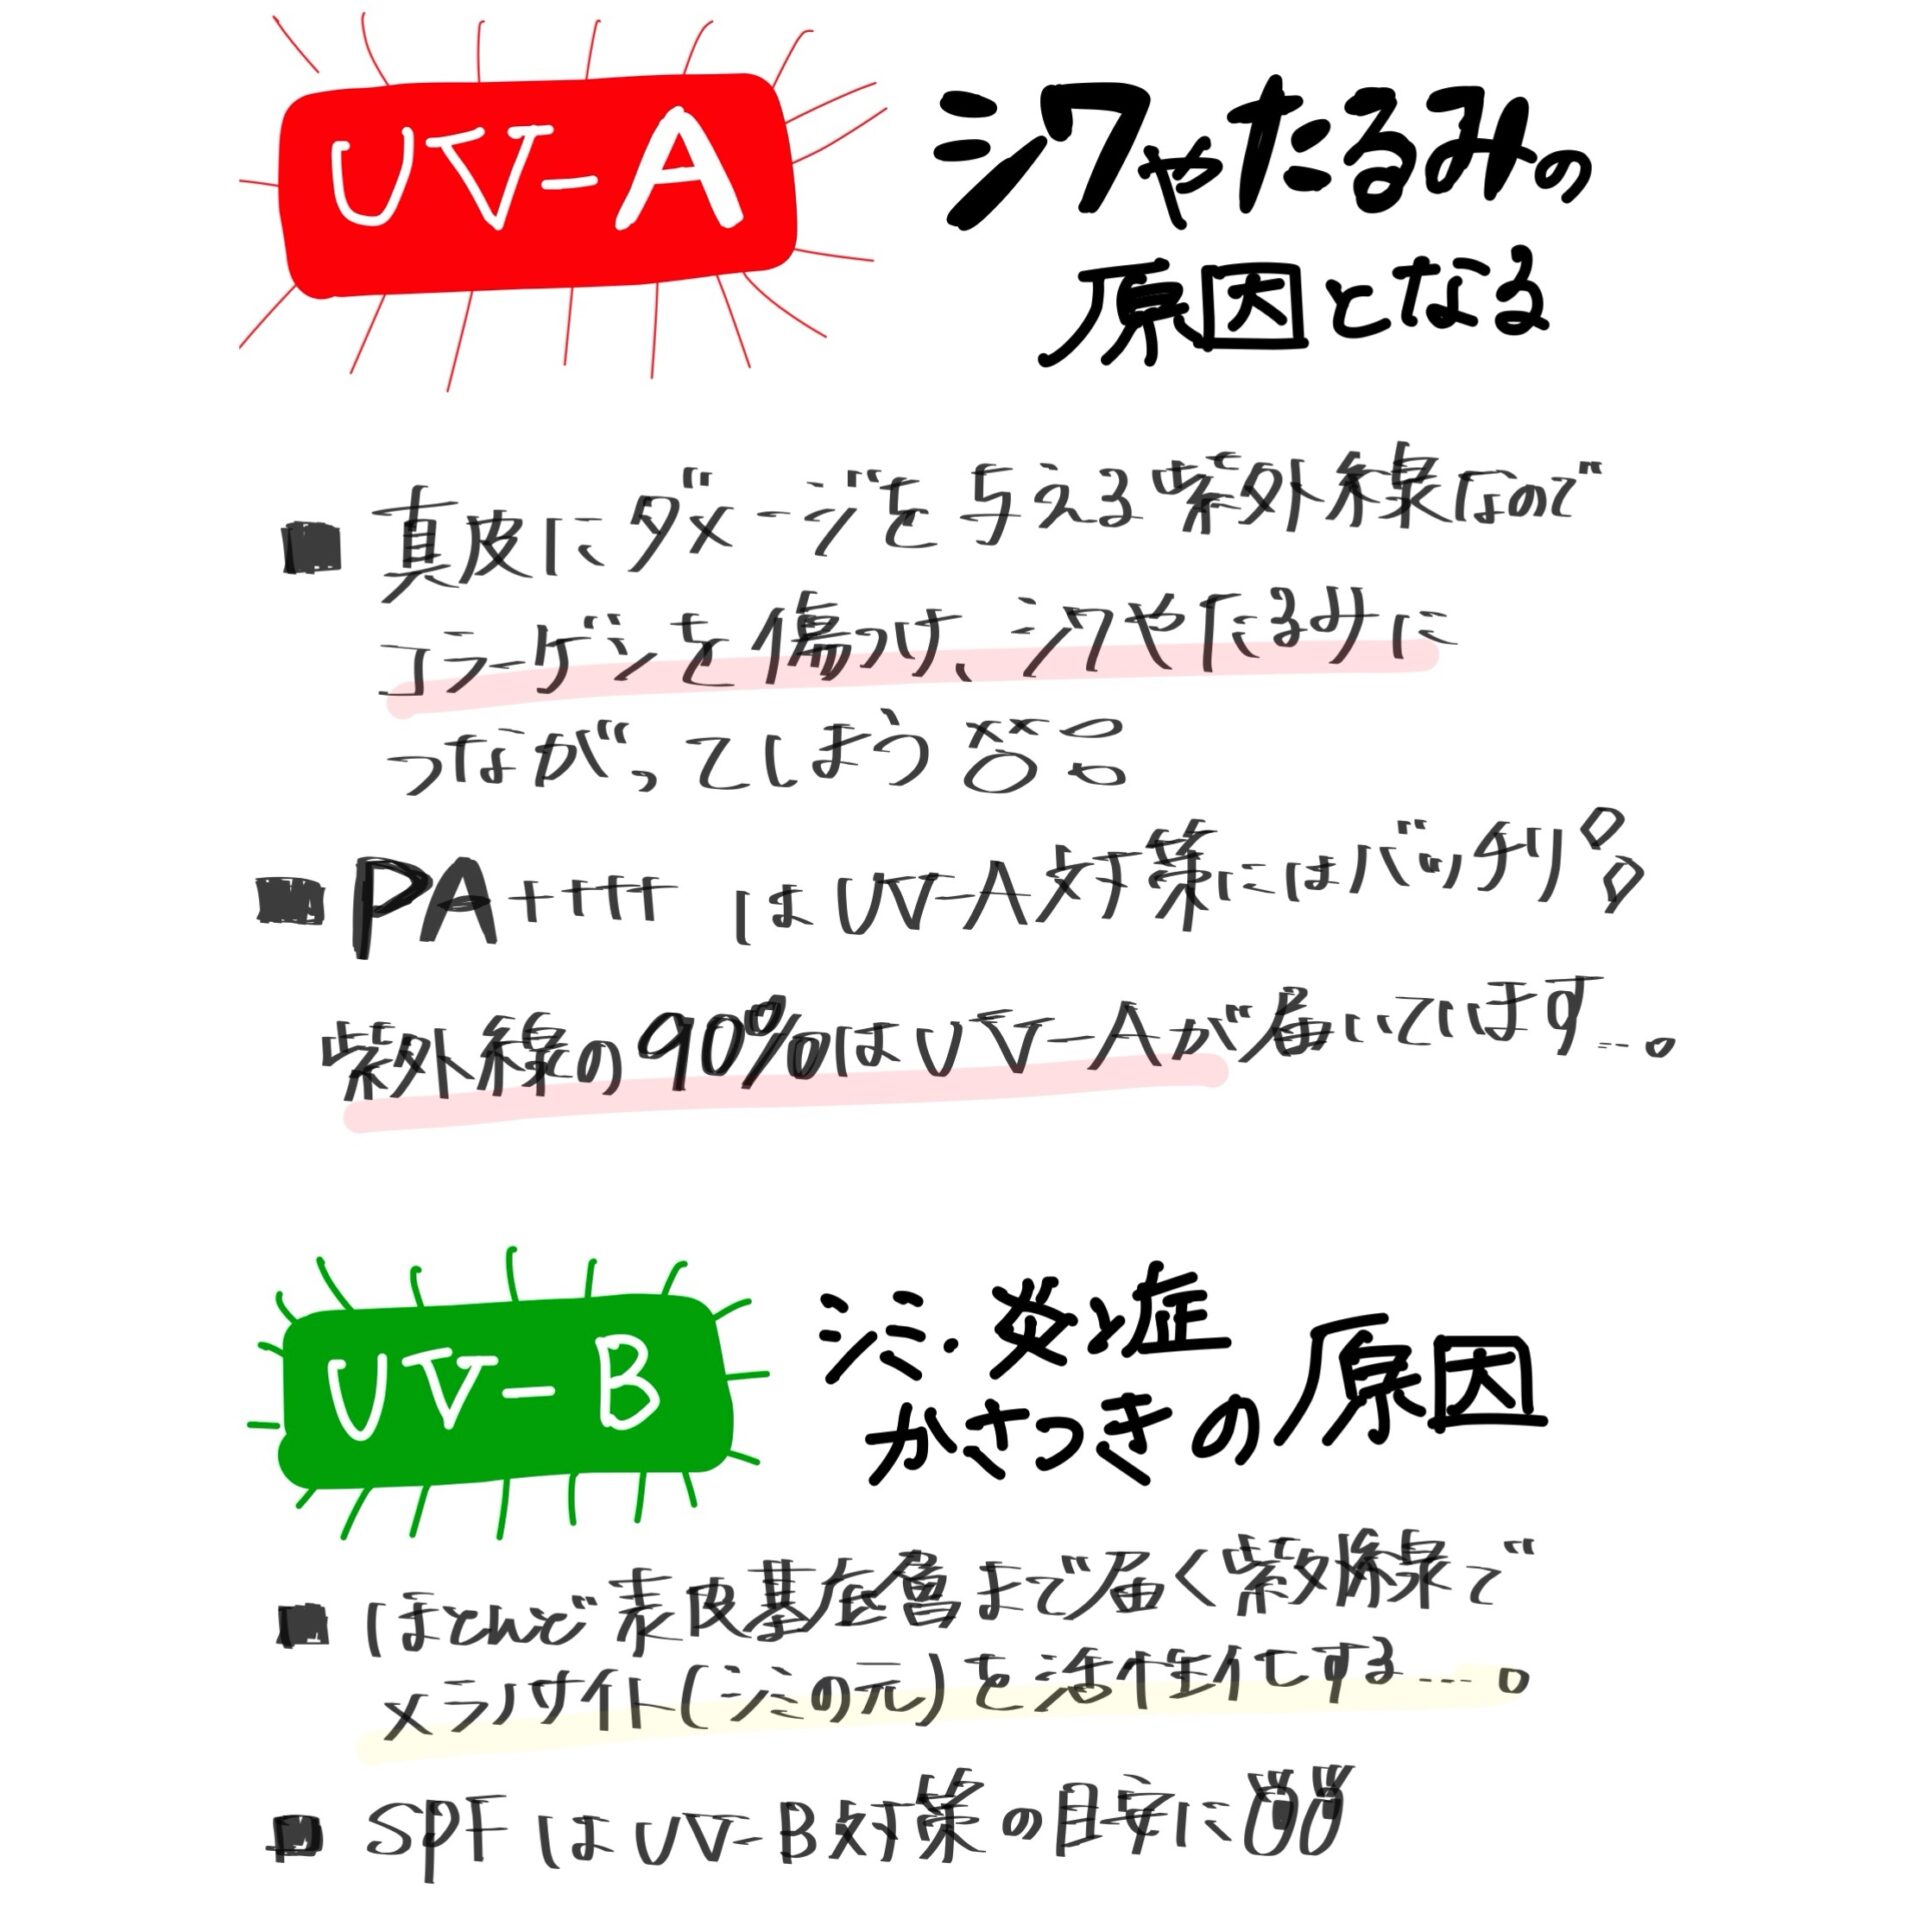 UV-A
シワやたるみの
原因となる
■ 真皮にダメージを与える紫外線なので
コラーゲンを傷つけ、シワやたるみに
つながってしまう
■ PA++++ はUV-A対策にはバッチリ!!
紫外線の90%はUV-Aが届いています...。
UV-B
シミ・炎症
かさつきの原因
■ ほとんど表皮基底層まで届く紫外線で
メラノサイト(シミの元)を活性化する...。
■ SPFはUV-B対策の目安に